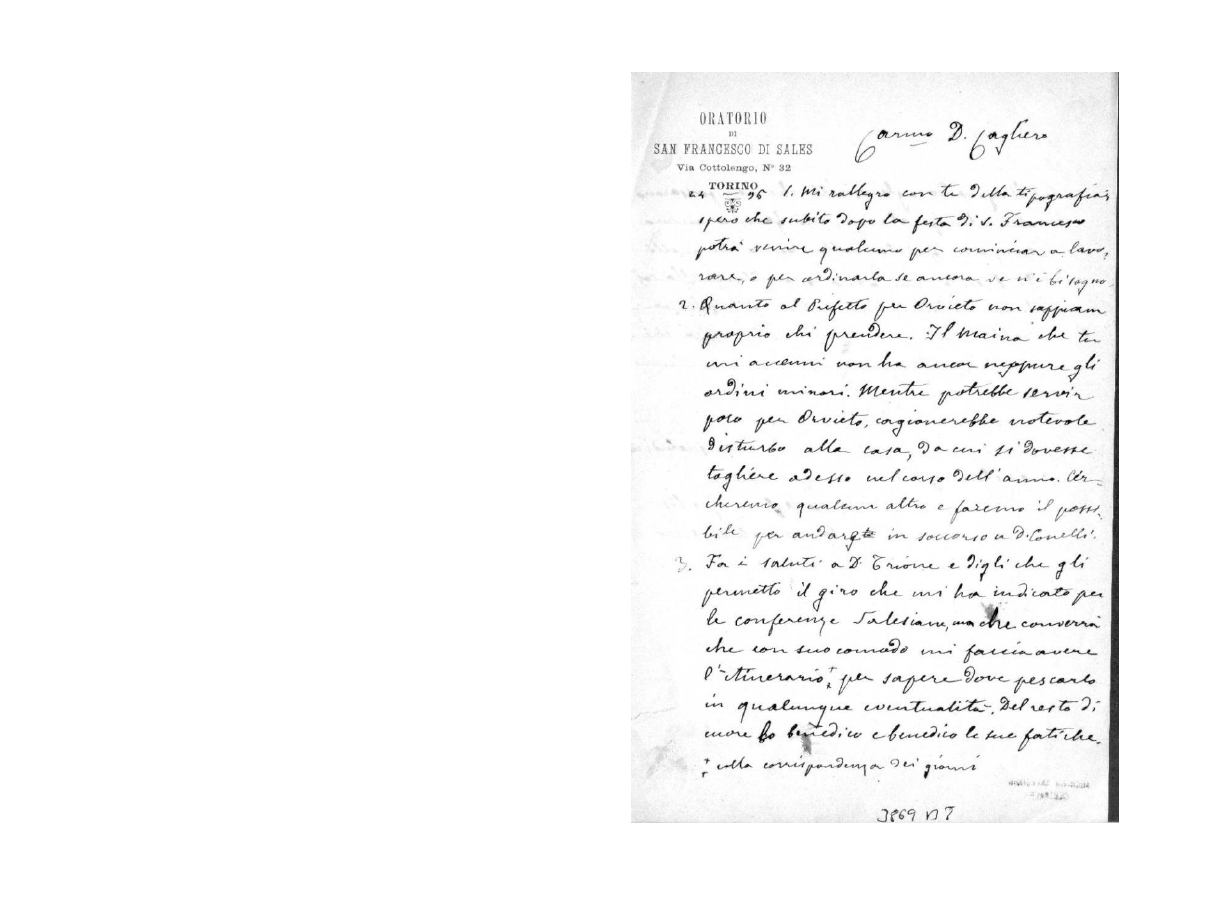 ORATORIO
DI
SAN FRANCESCO DI SALES
Via Cottolengo, N° 32
TORINO
Carmo D. Cagliero
24 96 1. Mi rallegro con te della tipografia;
spero che subito dopo la festa di S. Francesco
potrà venire qualcuno per cominciar a lavo-
rare, o per ordinarla se ancora ve n'è bisogno.
2. Quanto al Prefetto per Orvieto non sappiam
proprio chi prendere. Il Maina che tu
mi accenni non ha ancor neppure gli
ordini minori. Mentre potrebbe servir
poco per Orvieto, cagionerebbe notevole
disturbo alla casa, da cui si dovesse
togliere adesso nel corso dell'anno. Cer-
cheremo qualcun altro e faremo il possi-
bile per andar in soccorso a D. Conelli.
3. Fa i saluti a D. Trione e digli che gli
permetto il giro che mi ha indicato per
le conferenze Salesiane, ma che converrà
che con suo comodo mi faccia avere
l'itinerario, per sapere dove pescarlo
in qualunque eventualità. Del resto di
cuore lo benedico e benedico le sue fatiche.
colla corrispondenza dei giorni
3869 B 7